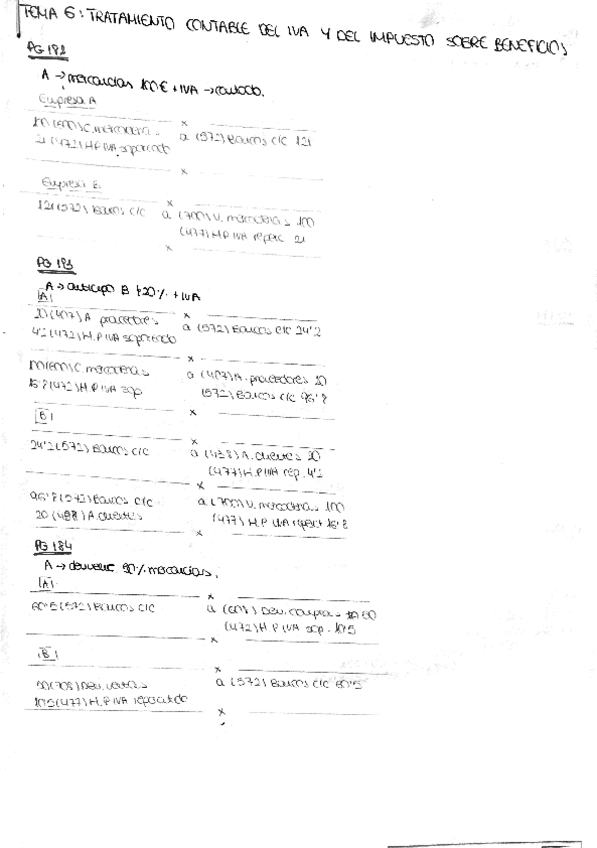 TEMA 6: TRATAMIENTO CONTABLE DEL IVA Y DEL IMPUESTO SOBRE BENEFICIOS
PG 182
A → mercancías 100€ + IVA → contado.
Empresa A
x
100 (600) C. mercaderías a (572) Bancos c/c 121
21 (472) H.P IVA soportado
x
Empresa B.
x
121 (572) Bancos c/c a (700) V. mercaderías 100
(477) H.P IVA reperc 21
x
PG 183
A → anticipo B 20% + IVA
A
x
20 (407) A. proveedores a (572) Bancos c/c 24'2
4'2 (472) H.P IVA soportado
x
100 (600) C. mercaderías a (407) A. proveedores 20
16'8 (472) H.P IVA sop (572) Bancos c/c 96'8
B x
x
24'2 (572) Bancos c/c a (438) A. clientes 20
(477) H.P IVA rep. 4'2
x
96'8 (572) Bancos c/c a (700) V. mercaderías 100
20 (438) A. clientes (477) H.P IVA reperc 16'8
x
PG 184
A → devuelve 50% mercancías.
A
x
60'5 (572) Bancos c/c a (608) Dev. compras 50
(472) H.P IVA sop. 10'5
x
B
x
50 (708) Dev. ventas a (572) Bancos c/c 60'5
10'5 (477) H.P IVA repercutido
x